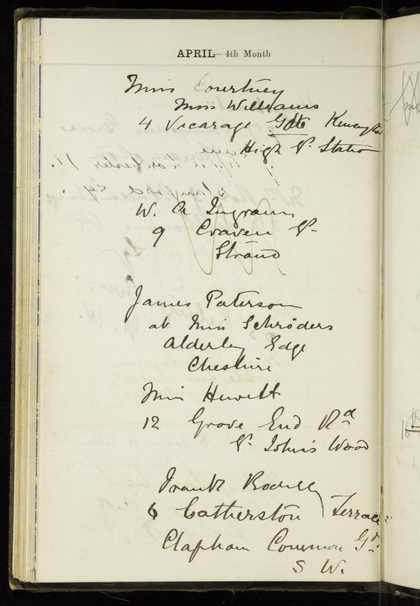 APRIL—4th Month
Miss Courtney
Miss Williams
4 Vicarage Gate Kensington
High St. Station
W. A. Ingram
9 Craven St.
Strand
James Paterson
at Miss Schröders
Alderley Edge
Cheshire
Miss Hewitt
12 Grove End Rd
St. John's Wood
Frank
6 Catherston Terrace
Clapham Common Gdns
S W.